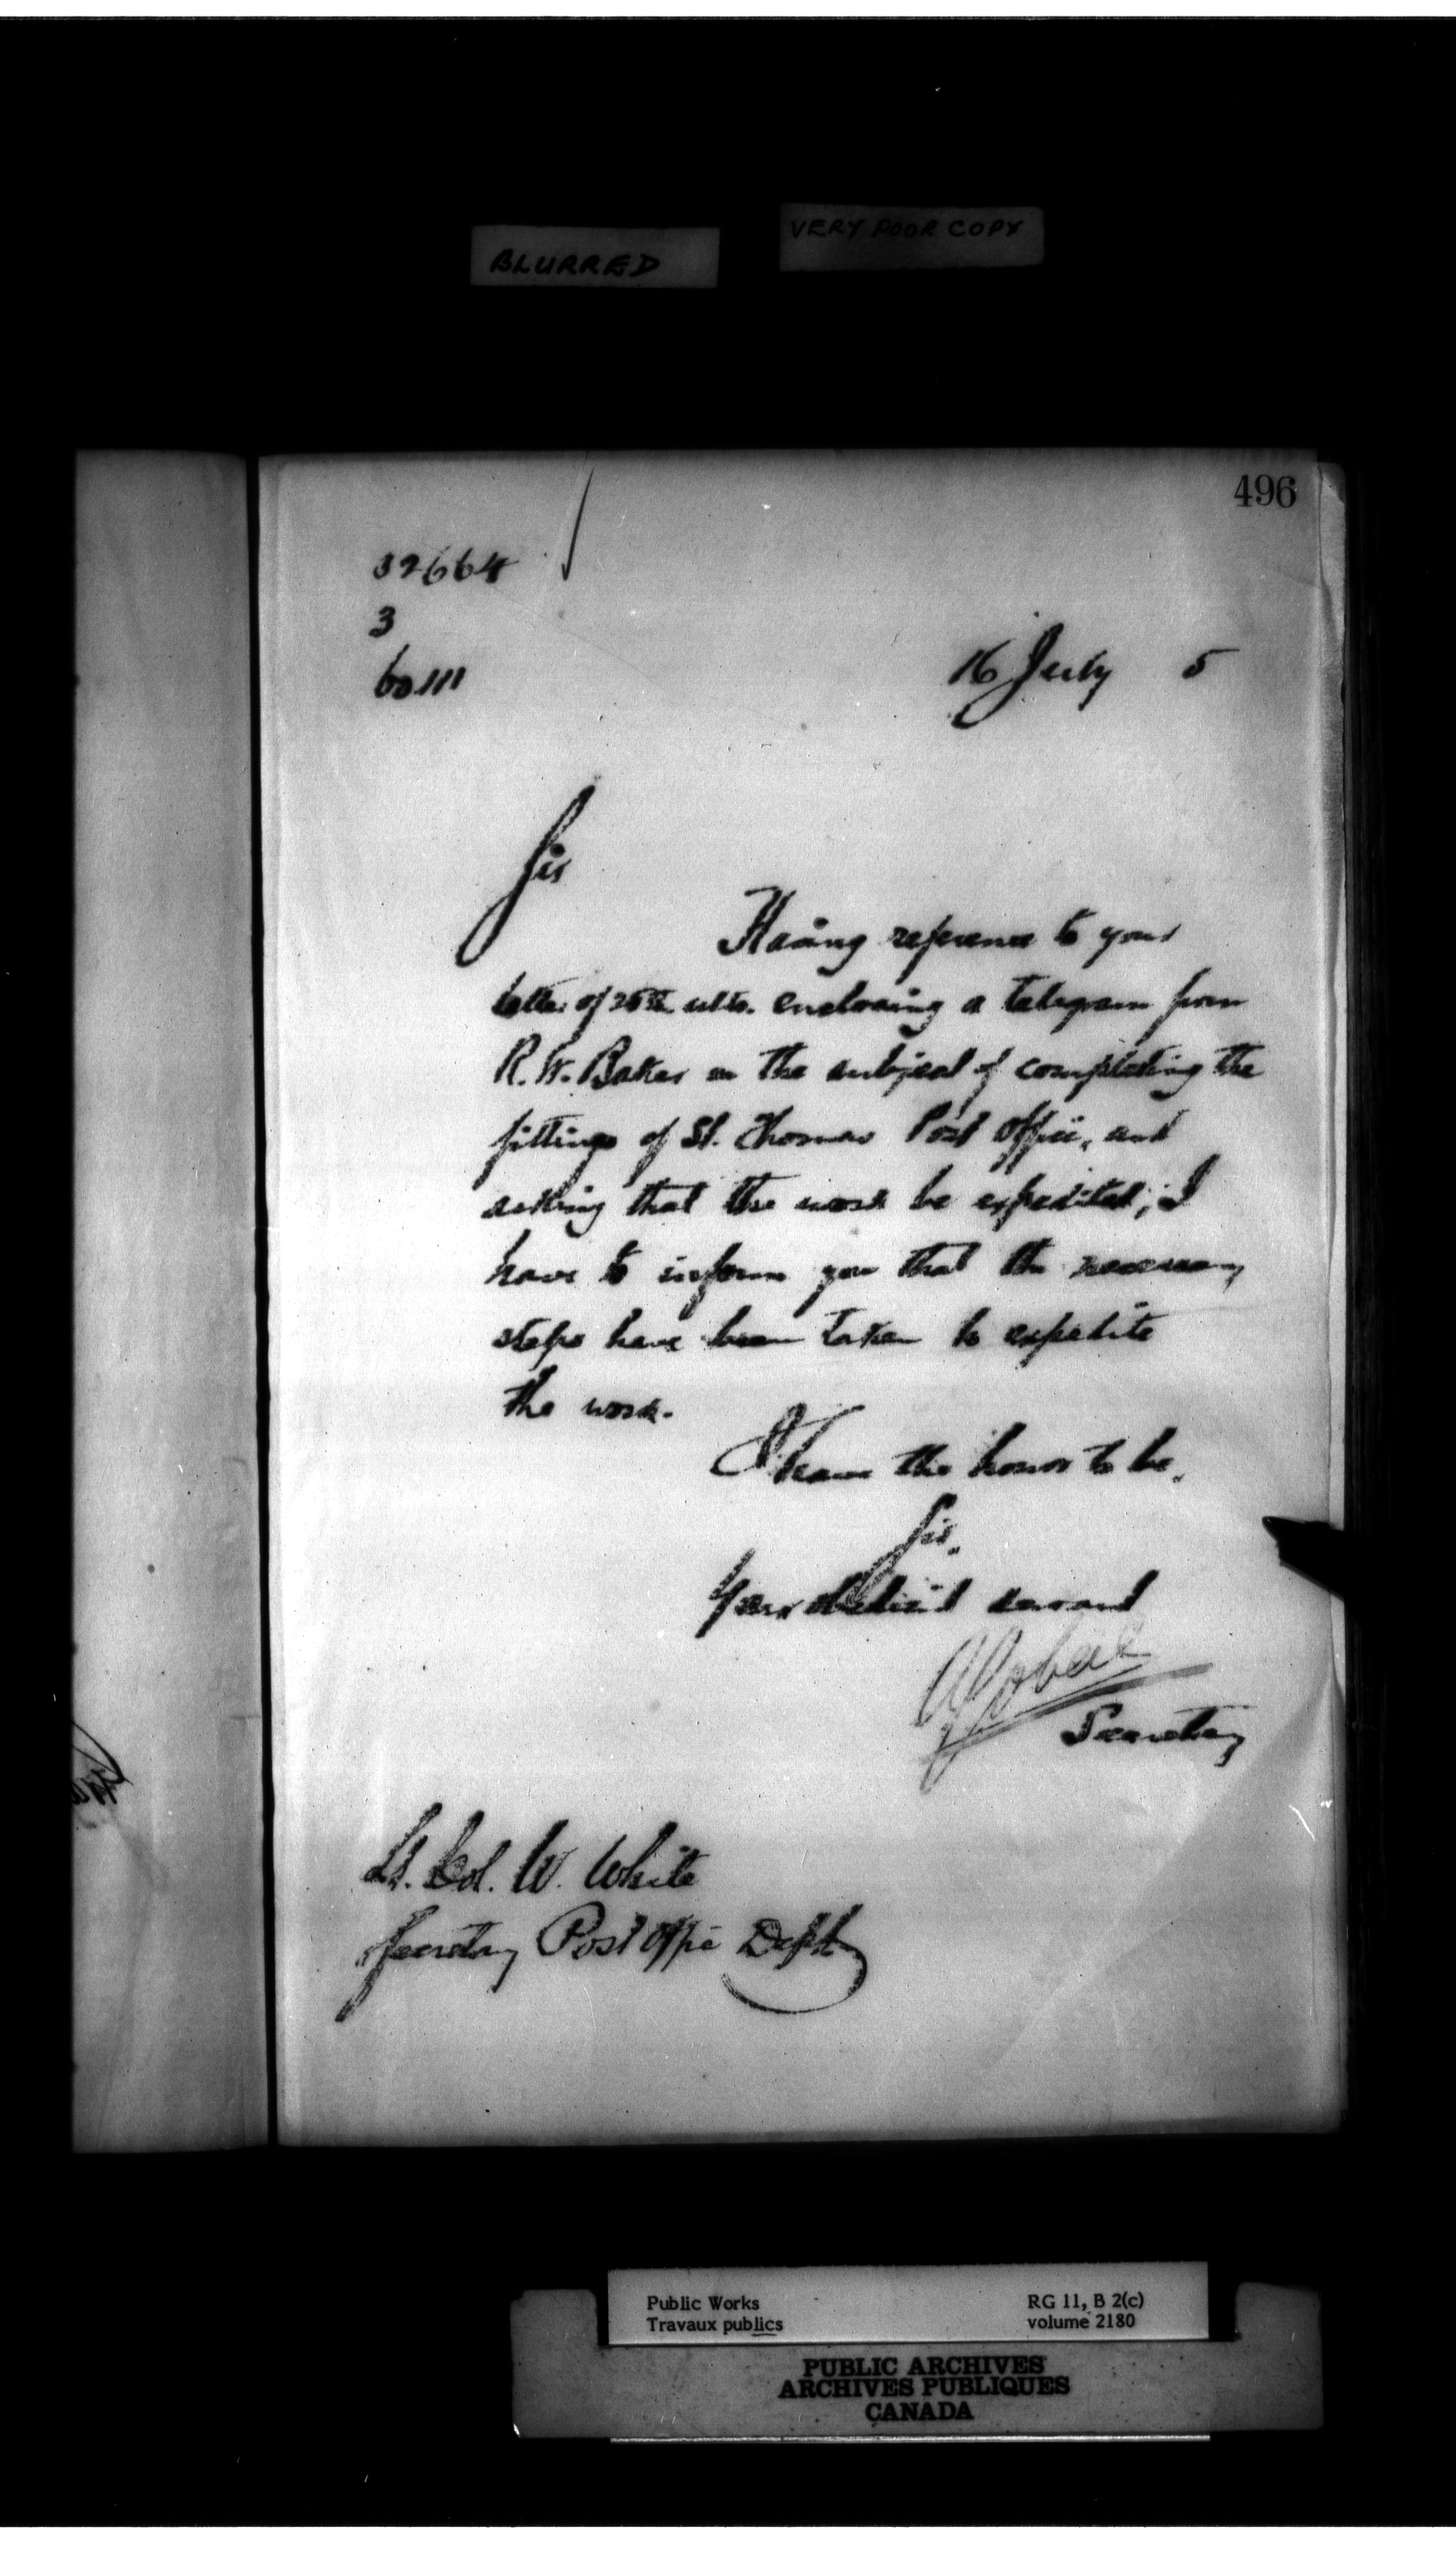 BLURRED
VERY POOR COPY
496
32664
3
60111
16 July 5
Sir
Having reference to your
letter of 25th ulto. enclosing a telegram from
R. W. Baker on the subject of completing the
fittings of St. Thomas Post Office, and
asking that the work be expedited; I
have to inform you that the necessary
steps have been taken to expedite
the work.
I have the honor to be,
Sir,
Your obedient servant
A Gobeil
Secretary
Lt. Col. W. White
Secretary Post Office Dept
Public Works
Travaux publics
RG 11, B 2(c)
volume 2180
PUBLIC ARCHIVES
ARCHIVES PUBLIQUES
CANADA